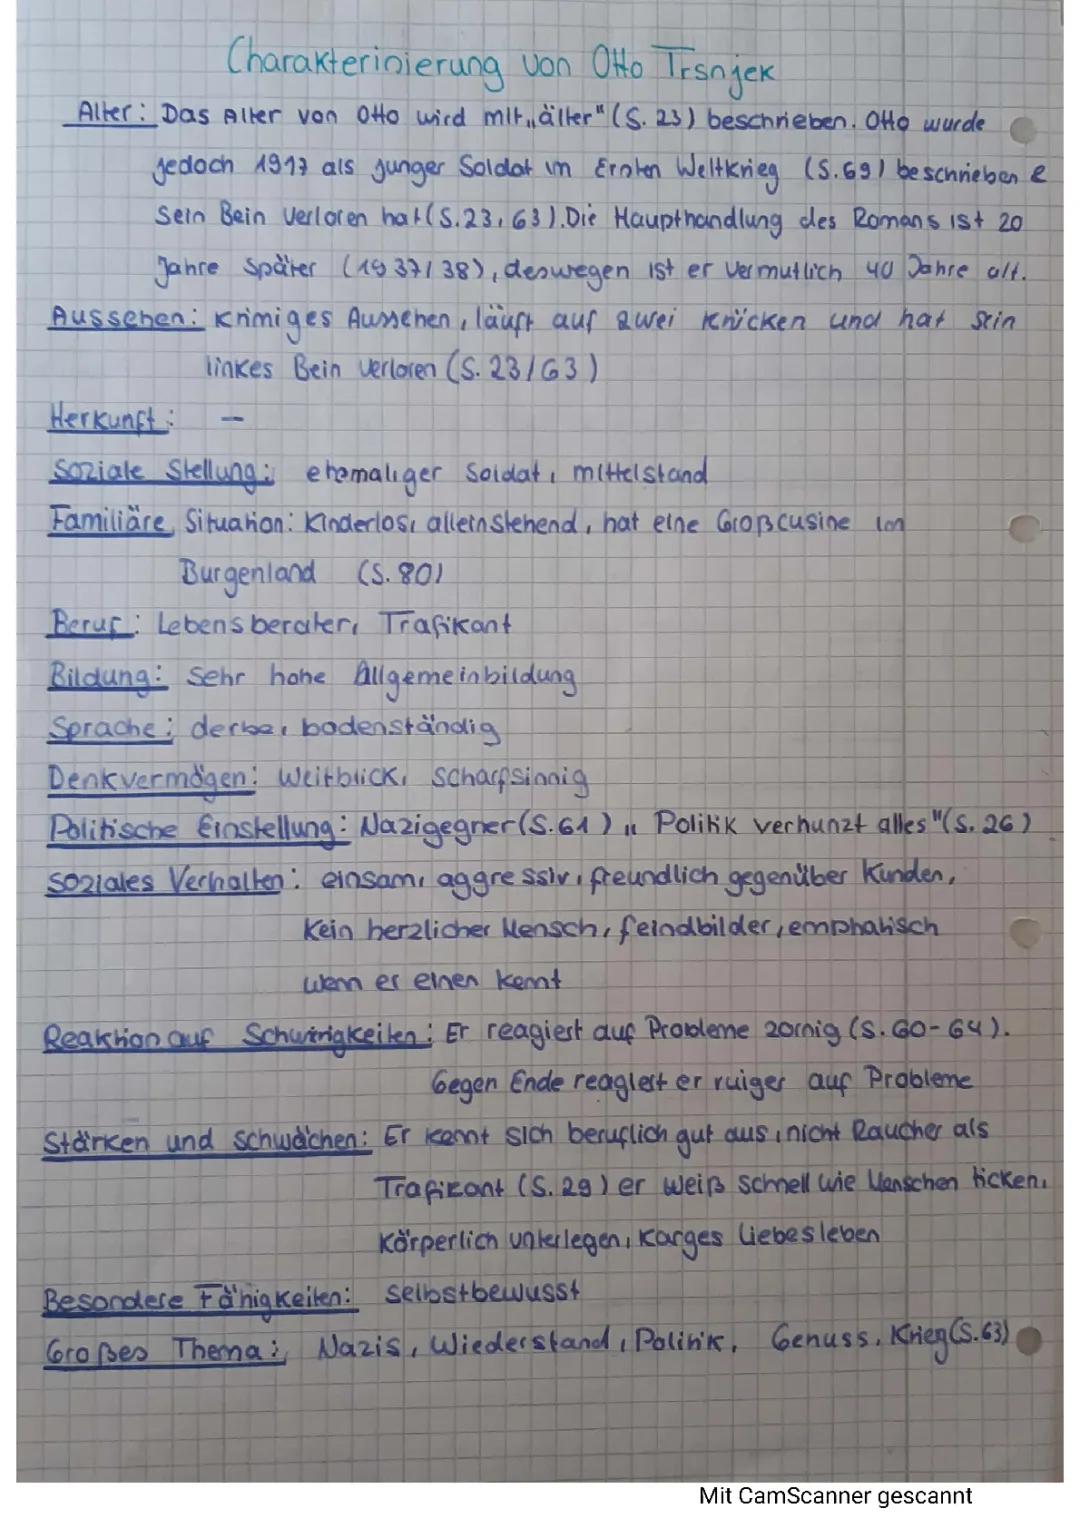 Charakterisierung von Otto Trsnjek
Alter: Das Alter von Otto wird mit „älter" (S. 23) beschrieben. Otto wurde
jedoch 1917 als junger Soldat im Ersten Weltkrieg (S.69) beschrieben &
Sein Bein verloren hat (S.23, 63). Die Haupthandlung des Romans ist 20
Jahre Später (1937/38), deswegen ist er vermutlich 40 Jahre alt.
Aussehen: Krimiges Aussehen, läuft auf zwei Krücken und hat sein
linkes Bein verloren (S. 23/63)
Herkunft: –
Soziale Stellung: ehemaliger Soldat, mittelstand
Familiäre Situation: Kinderlos, alleinstehend, hat eine Großcusine im
Burgenland (S. 80)
Beruf: Lebensberater, Trafikant
Bildung: Sehr hohe Allgemeinbildung
Sprache: derbe, bodenständig
Denkvermögen: Weitblick, scharfsinnig
Politische Einstellung: Nazigegner (S.61) „ Politik verhunzt alles" (S. 26)
Soziales Verhalten: einsam, aggressiv, freundlich gegenüber Kunden,
Kein herzlicher Mensch, feindbilder, emphatisch
wenn er einen kennt
Reaktion auf Schwirigkeiten: Er reagiert auf Probleme zornig (S. 60-64).
Gegen Ende reagiert er ruiger auf Probleme
Stärken und Schwächen: Er kennt sich beruflich gut aus, nicht Raucher als
Trafikant (S. 29) er weiß schnell wie Menschen ticken,
Körperlich unterlegen, Karges Liebesleben
Besondere Fähigkeiten: selbstbewusst
Großes Thema: Nazis, Wiederstand, Politik, Genuss, Krieg (S.63)
Mit CamScanner gescannt